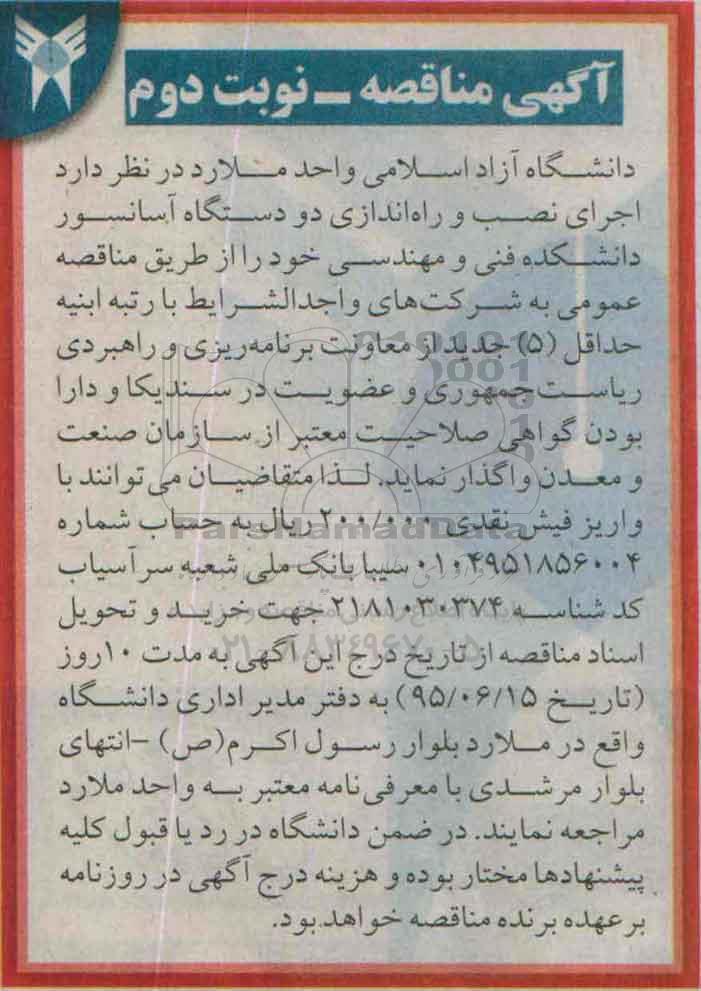 آگهی مناقصه ـ نوبت دوم
دانشگاه آزاد اسلامی واحد ملارد در نظر دارد
اجرای نصب و راه‌اندازی دو دستگاه آسانسور
دانشکده فنی و مهندسی خود را از طریق مناقصه
عمومی به شرکت‌های واجدالشرایط با رتبه ابنیه
حداقل (۵) جدید از معاونت برنامه‌ریزی و راهبردی
ریاست‌جمهوری و عضویت در سندیکا و دارا
بودن گواهی صلاحیت معتبر از سازمان صنعت
و معدن واگذار نماید. لذا متقاضیان می‌توانند با
واریز فیش نقدی ۲۰۰/۰۰۰ ریال به حساب شماره
ParsNamadData
۰۱۰۴۹۵۱۸۵۶۰۰۴ سیبا بانک ملی شعبه سرآسیاب
کد شناسه ۲۱۸۱۰۳۰۳۷۴ جهت خرید و تحویل
اسناد مناقصه از تاریخ درج این آگهی به مدت ۱۰روز
(تاریخ ۹۵/۰۶/۱۵) به دفتر مدیر اداری دانشگاه
واقع در ملارد بلوار رسول اکرم(ص) -انتهای
بلوار مرشدی با معرفی‌نامه معتبر به واحد ملارد
مراجعه نمایند. در ضمن دانشگاه در رد یا قبول کلیه
پیشنهادها مختار بوده و هزینه درج آگهی در روزنامه
برعهده برنده مناقصه خواهد بود.